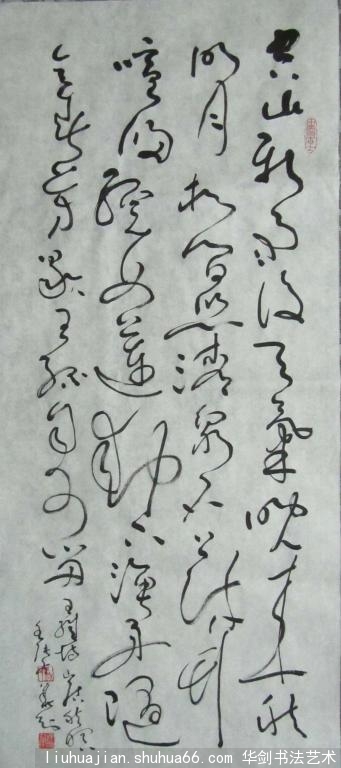 空山新雨後天氣晚来秋
明月松間照清泉石上流竹
喧歸浣女蓮動下漁舟隨
意春芳歇王孫自可留
王維詩山居秋暝
liuhuajian.shuhua66.com 华剑书法艺术